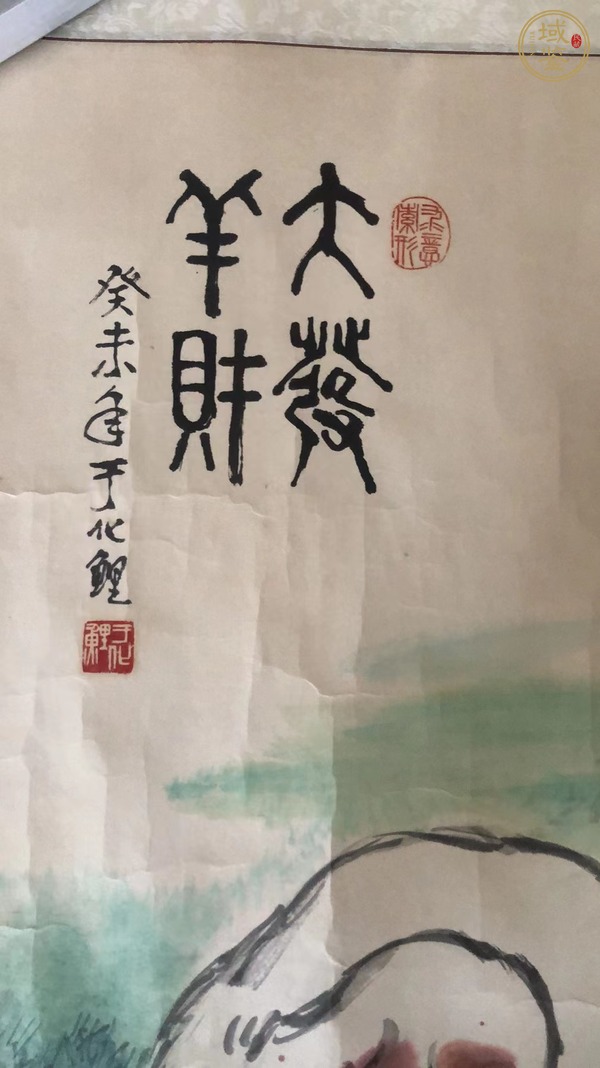 大發
羊財
癸未年于化鯉
于化鯉
域鉴